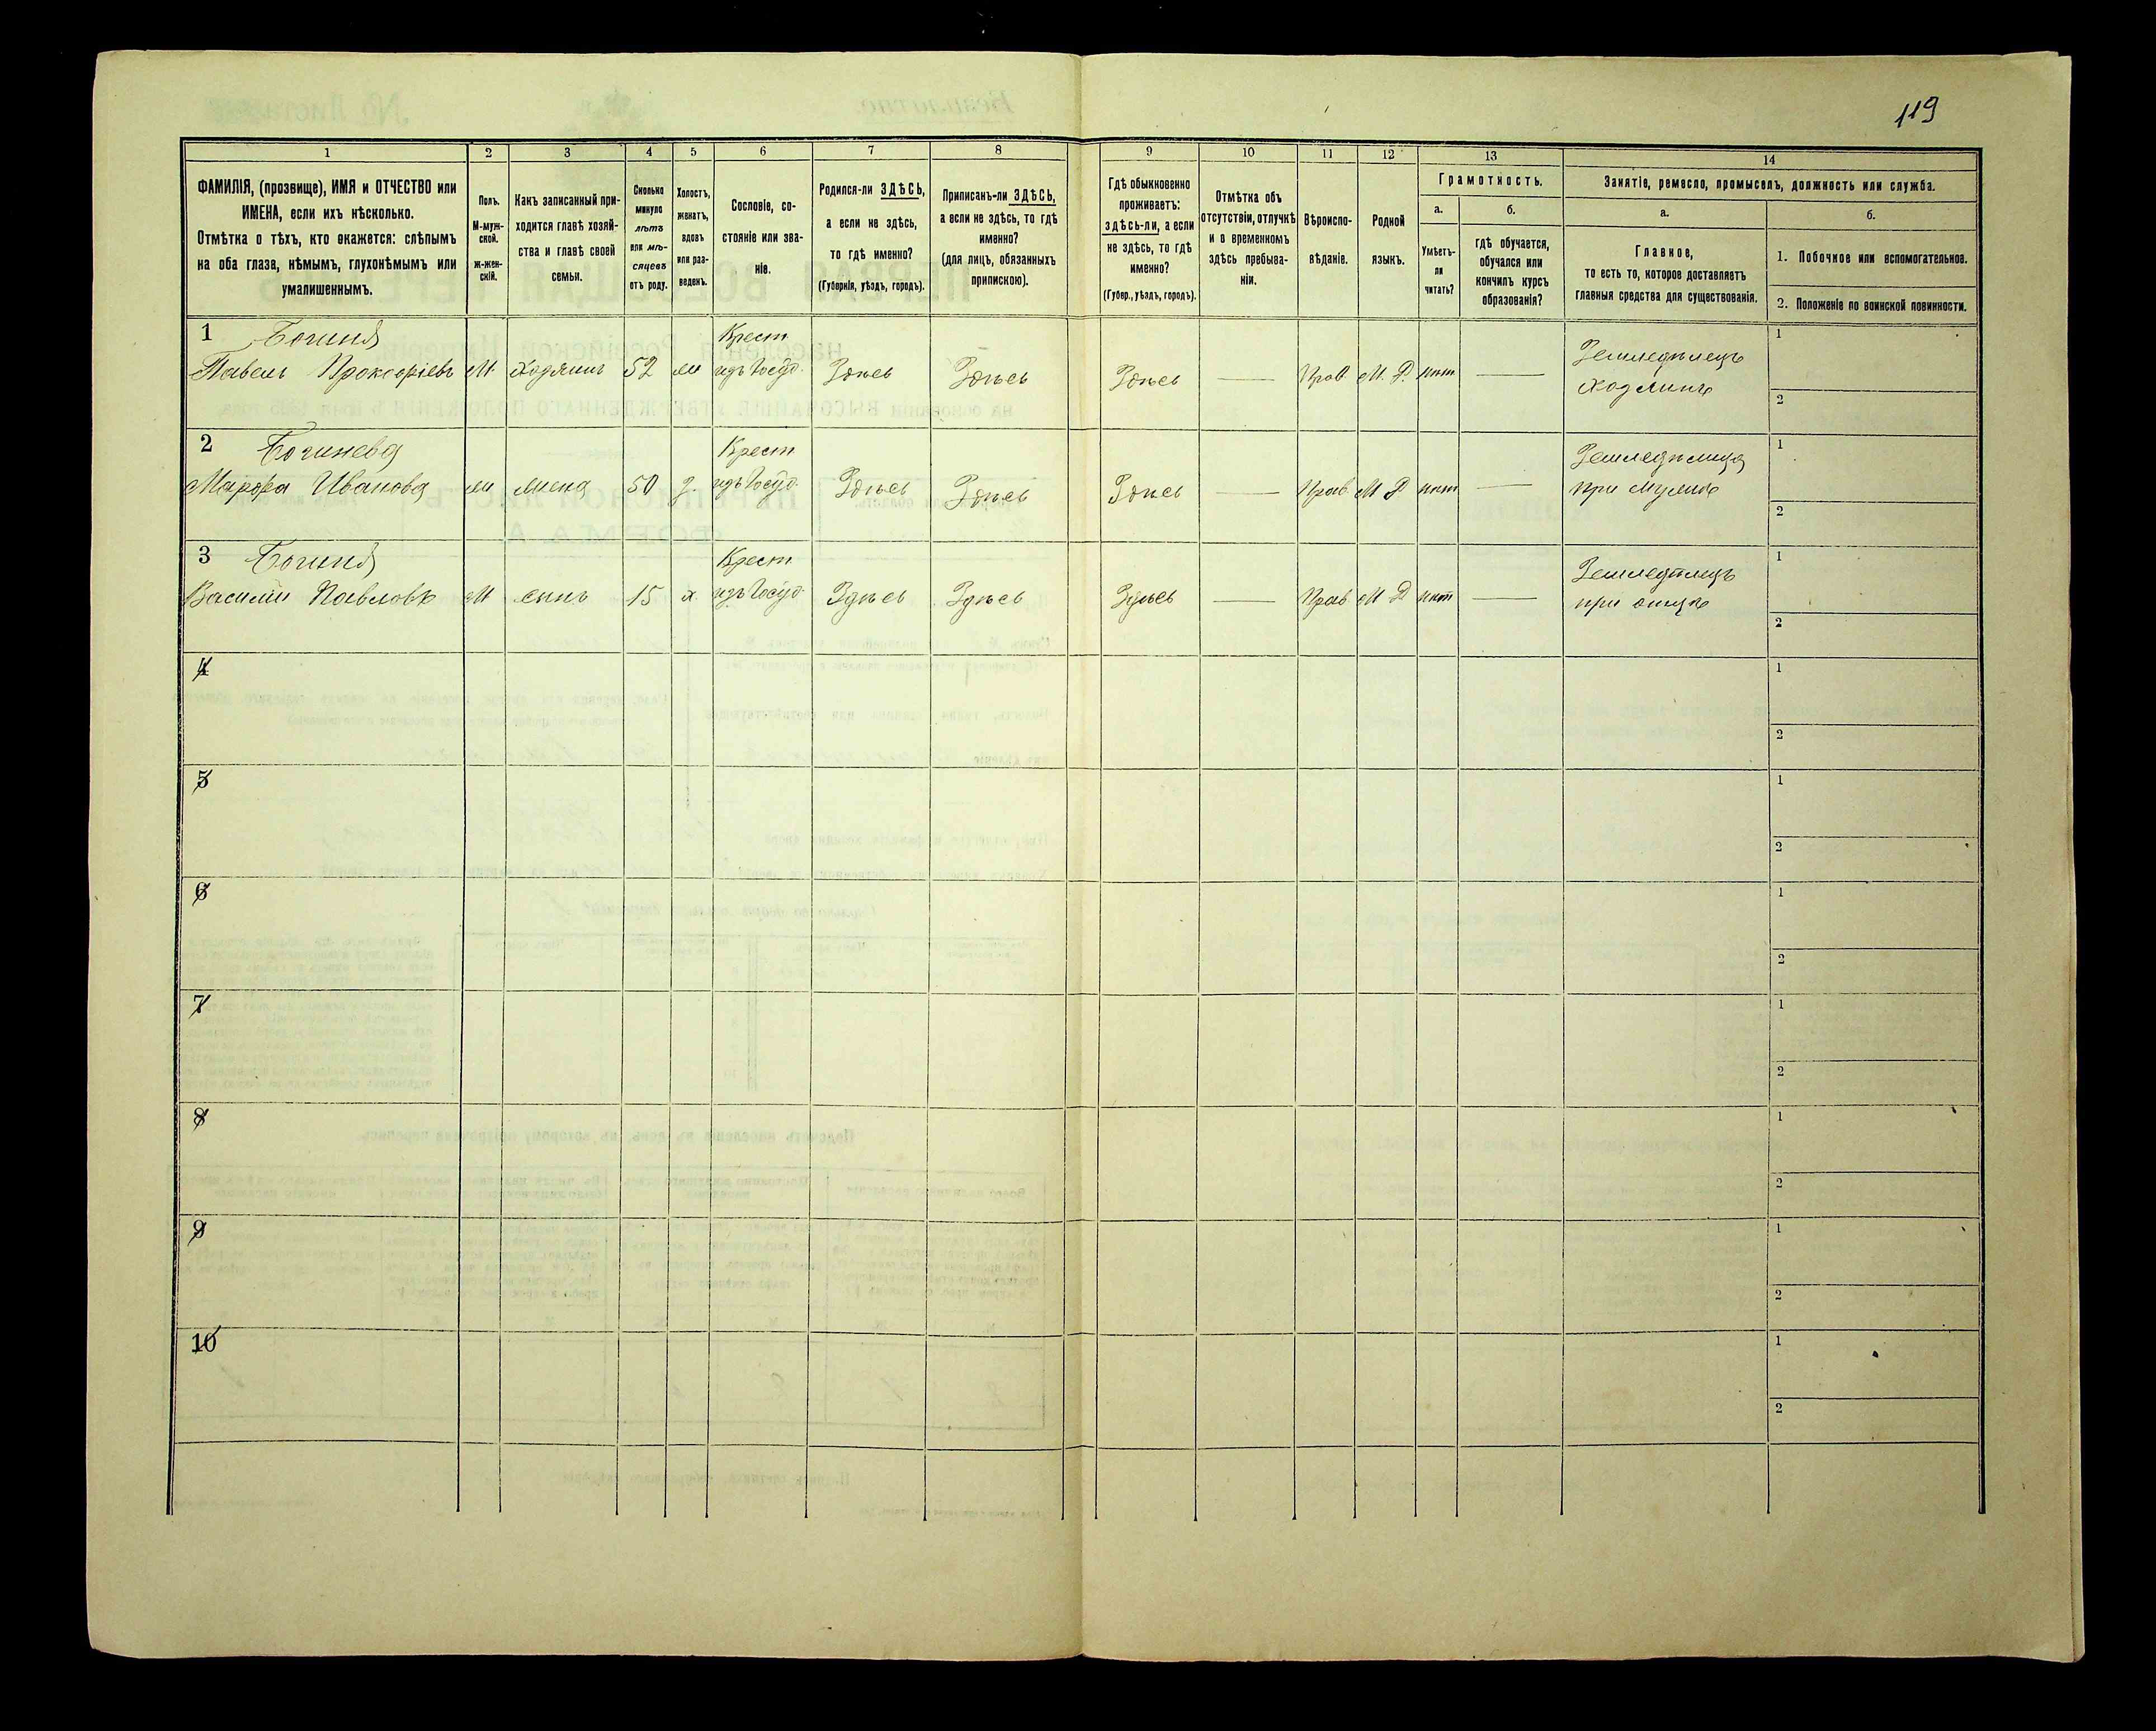 119
1 2 3 4 5 6 7 8 9 10 11 12 13 14
ФАМИЛІЯ, (прозвище), ИМЯ и ОТЧЕСТВО или
ИМЕНА, если ихъ нѣсколько.
Отмѣтка о тѣхъ, кто окажется: слѣпымъ
на оба глаза, нѣмымъ, глухонѣмымъ или
умалишеннымъ.
Полъ.
М-муж-
ской.
ж-жен-
скій.
Какъ записанный при-
ходится главѣ хозяй-
ства и главѣ своей
семьи.
Сколько
минуло
лѣтъ
или мѣ-
сяцевъ
отъ роду.
Холостъ,
женатъ,
вдовъ
или раз-
веденъ.
Сословіе, со-
стояніе или зва-
ніе.
Родился-ли ЗДѢСЬ,
а если не здѣсь,
то гдѣ именно?
(Губернія, уѣздъ, городъ).
Приписанъ-ли ЗДѢСЬ,
а если не здѣсь, то гдѣ
именно?
(для лицъ, обязанныхъ
припискою).
Гдѣ обыкновенно
проживаетъ:
здѣсь-ли, а если
не здѣсь, то гдѣ
именно?
(Губер., уѣздъ, городъ).
Отмѣтка объ
отсутствіи, отлучкѣ
и о временномъ
здѣсь пребыва-
ніи.
Вѣроиспо-
вѣданіе.
Родной
языкъ.
Грамотность.
а.
Умѣетъ-
ли
читать?
б.
гдѣ обучается,
обучался или
кончилъ курсъ
образованія?
Занятіе, ремесло, промыселъ, должность или служба.
а.
Главное,
то есть то, которое доставляетъ
главныя средства для существованія.
б.
1. Побочное или вспомогательное.
2. Положеніе по воинской повинности.
1 Крест 1
Павелъ М. Хозяинъ 52 изъ Госуд. Здѣсь Здѣсь Здѣсь — Прав М. Р. нѣт — Земледѣлецъ
Хозяинъ
2
2 Крест 1
Иванова жена 50 изъ Госуд. Здѣсь Здѣсь Здѣсь — Прав М Р нѣт — при мужѣ
2
3 Крест 1
Василiй Павловъ М сынъ 15 х изъ Госуд. Здѣсь Здѣсь Здѣсь — Прав М Р нѣт — Земледѣлецъ
при отцѣ
2
4 1
2
5 1
2
6 1
2
7 1
2
8 1
2
9 1
2
10 1
2